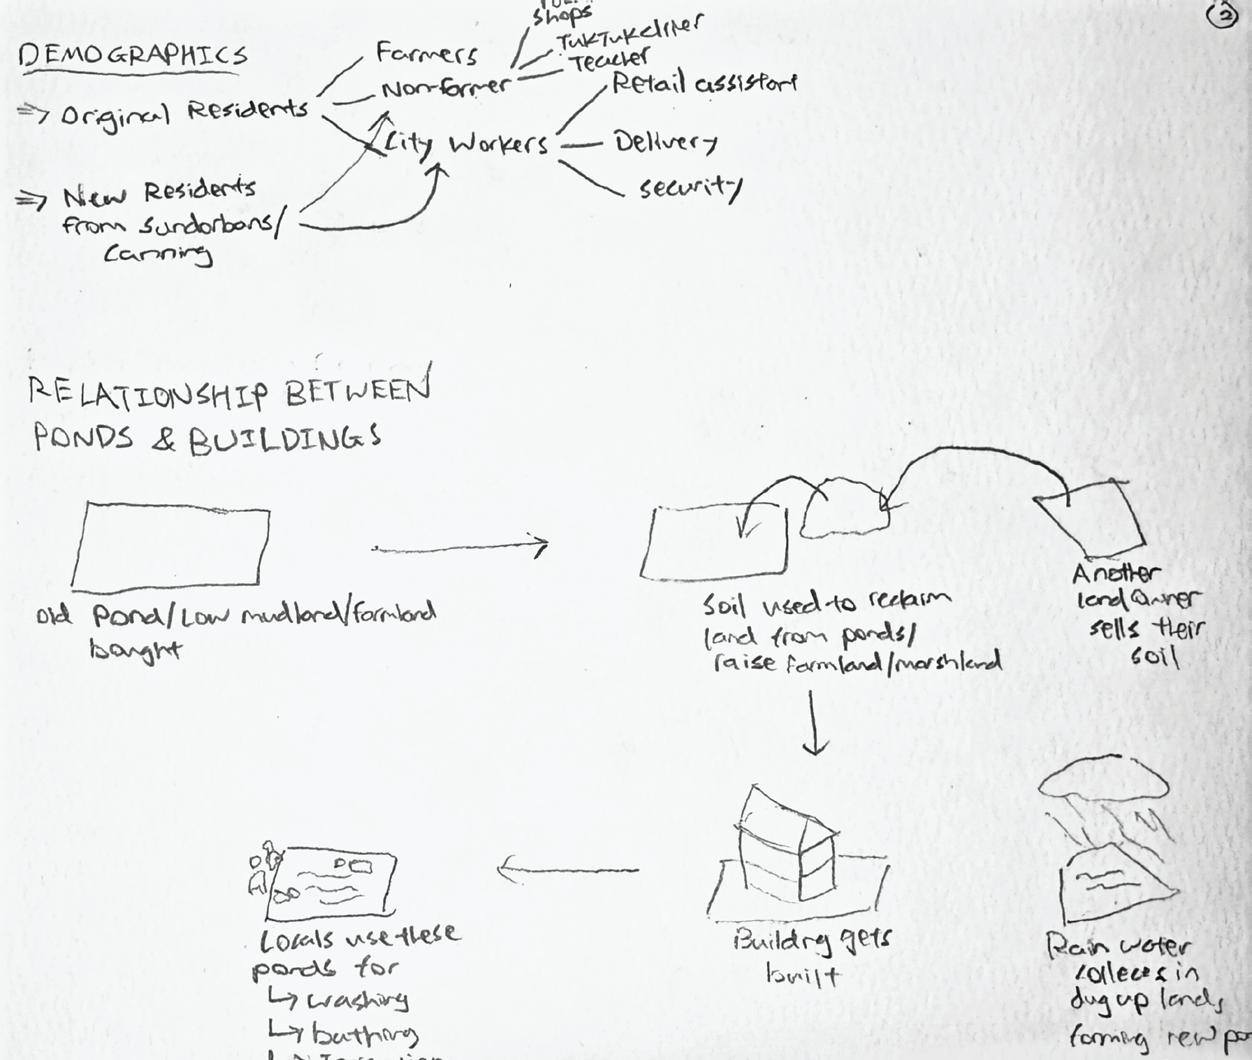 2
shops
DEMOGRAPHICS
Farmers
TukTukdriver
Teacher
Non-farmer
Retail assistant
⇒ Original Residents
City Workers
Delivery
⇒ New Residents
security
from Sundarbans/
Canning
RELATIONSHIP BETWEEN
PONDS & BUILDINGS
Old Pond/Low mudland/farmland
bought
Soil used to reclaim
land from ponds/
raise farmland/marshland
Another
land Owner
sells their
soil
Building gets
built
Rain water
collects in
dug up lands
forming new
Locals use these
ponds for
↳ washing
↳ bathing